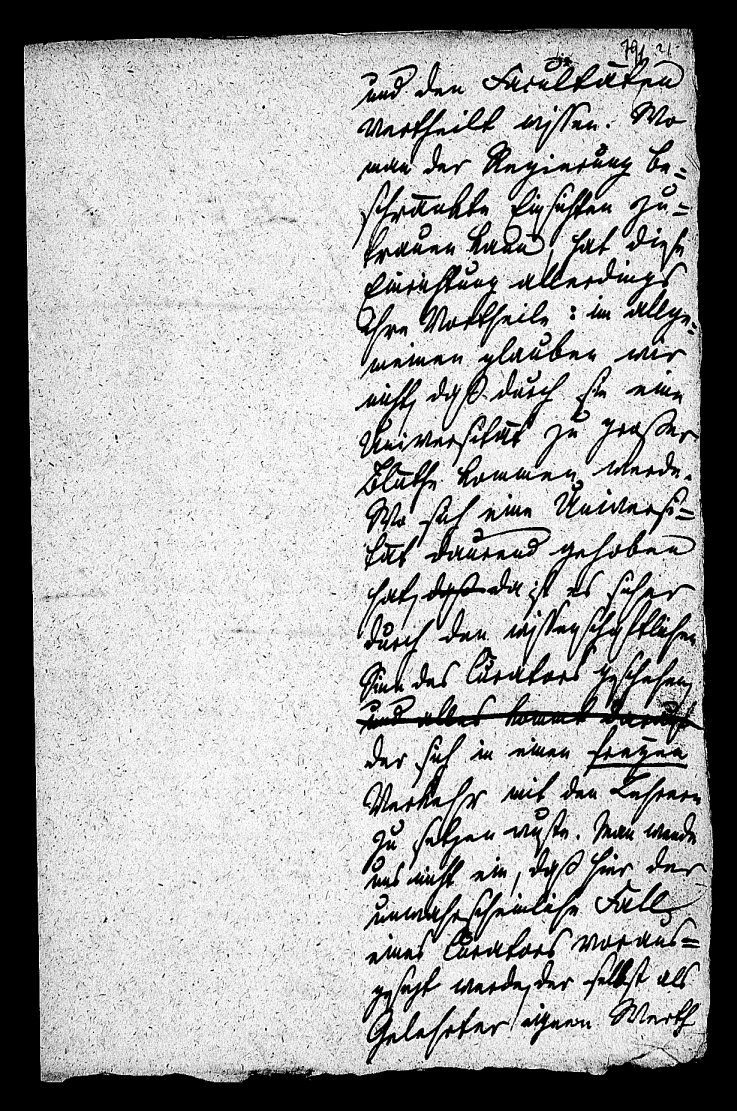 79 21.
und den Facultäten
vertheilt wissen. Wo
man der Regierung be-
schränkte Einsichten zu-
trauen kann, hat diese
Einrichtung allerdings
ihre Vortheile: im allge-
meinen glauben wir
nicht, daß durch sie eine
Universität zu großer
Blüthe kommen werde.
Wo sich eine Universi-
tät daurend gehoben
hat, daß da ist es sicher
durch den wissenschaftlichen
Sinn des Curators geschehen,
und alles kommt darauf
der sich in einen freyen
Verkehr mit den Lehrern
zu setzen wuste. Man wende
uns nicht ein, daß hier der
unwahrscheinliche Fall
eines Curators voraus-
gesetzt werde, der selbst als
Gelehrter eignen Werth